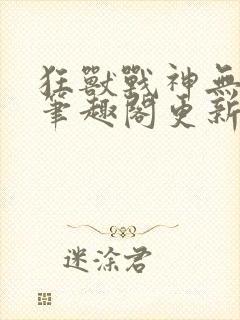 狂獸戰神無
筆趣閣更新
迷涂君